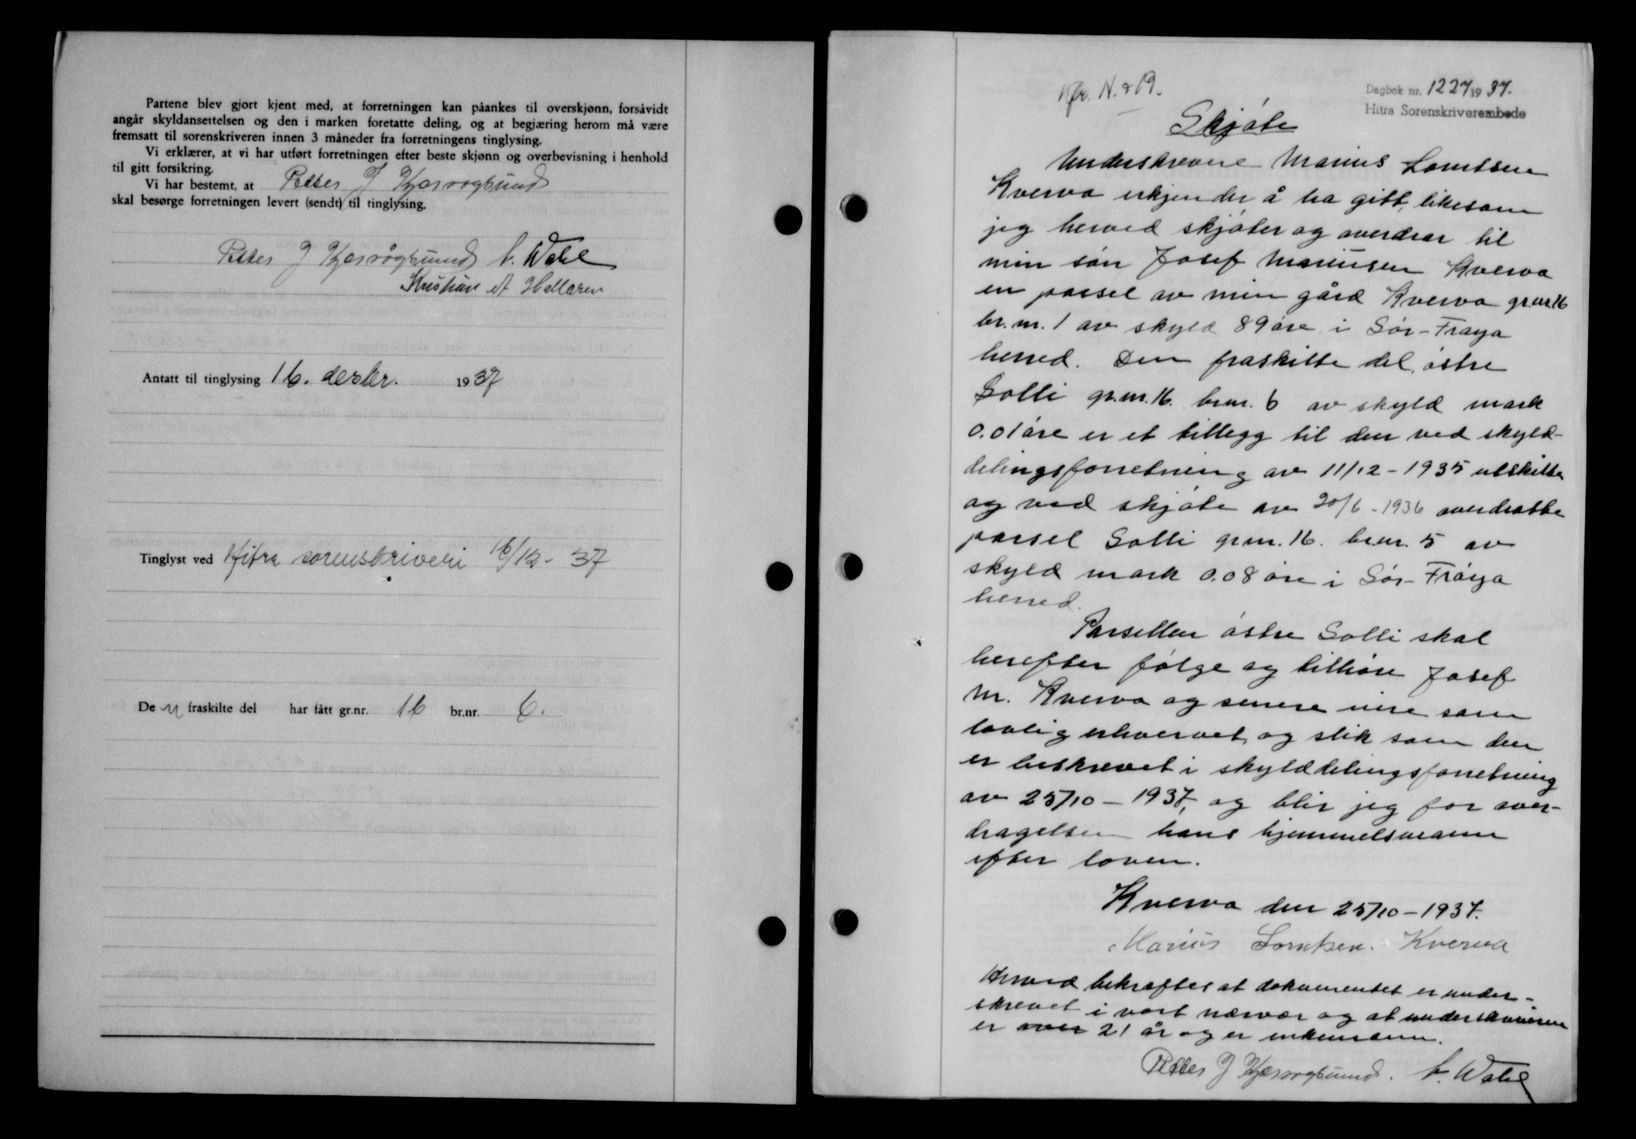 Partene blev gjort kjent med, at forretningen kan påankes til overskjønn, forsåvidt
angår skyldansettelsen og den i marken foretatte deling, og at begjæring herom må være
fremsatt til sorenskriveren innen 3 måneder fra forretningens tinglysing.
Vi erklærer, at vi har utført forretningen efter beste skjønn og overbevisning i henhold
til gitt forsikring.
Vi har bestemt, at Petter J
skal besørge forretningen levert (sendt) til tinglysing.
Petter J
Kristian
Antatt til tinglysing 16. desbr. 1937
Tinglyst ved Hitra sorenskriveri 16/12-37
De n fraskilte del har fått gr.nr. 16 br.nr. 6.
Dagbok nr. 1227 1937.
Hitra Sorenskriverembede
Skjøte
Underskrevne Marius Lorntsen
Kverva erkjender å ha gitt, likesom
jeg herved skjøter og averdrar til
min søn Josef Mariusen Kverva
en parsel av min gård Kverva gr.nr. 16
br.nr. 1 av skyld 89 øre i Sør-Frøya
herred. Den fraskilte del, østre
Solli gr.nr. 16. br.nr. 6 av skyld mark
0.01 øre er et tillegg til den ved skyld-
delingsforretning av 11/12-1935 utskilte
og ved skjøte av 20/6-1936 averdratte
parsel Solli gr.nr. 16. br.nr. 5 av
skyld mark 0.08 øre i Sør-Frøya
herred.
Parsellen østre Solli skal
herefter følge og tilhøre Josef
M. Kverva og senere eiere som
lovlig erhvervet, og slik som den
er beskrevet i skylddelingsforretning
av 25/10-1937, og blir jeg for aver-
dragelsen hans hjemmelsmann
efter loven.
Kverva den 25/10-1937.
Marius Lorntsen. Kverva
Herved bekreftes at dokumentet er under-
skrevet i vort nærvær og at underskriveren
er over 21 år og er enkemann.
Petter J